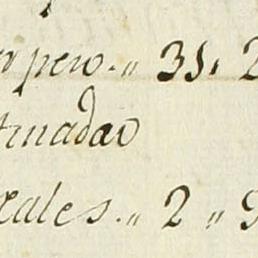 pero.. 31. 2
rnadas
cales.. 2 " 9